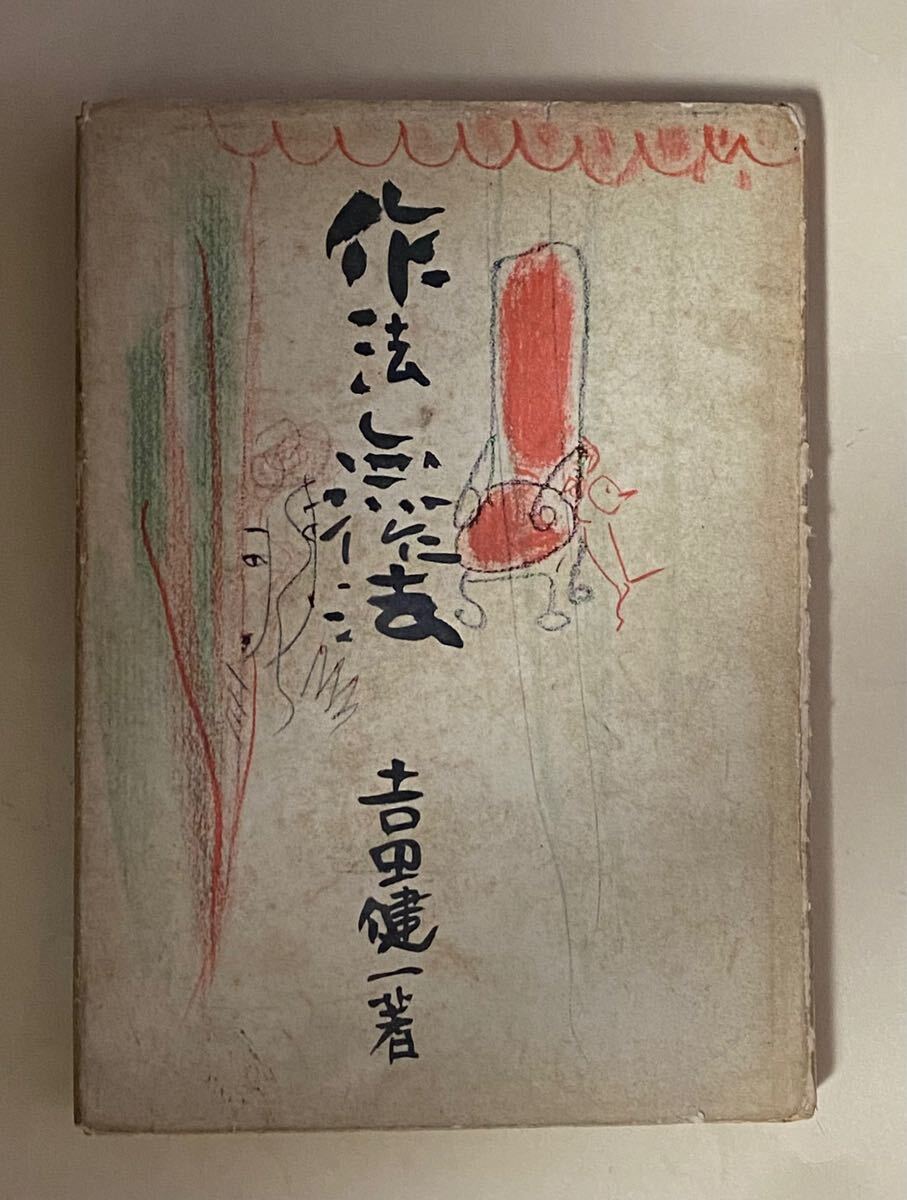 作法無作法
吉田健一著